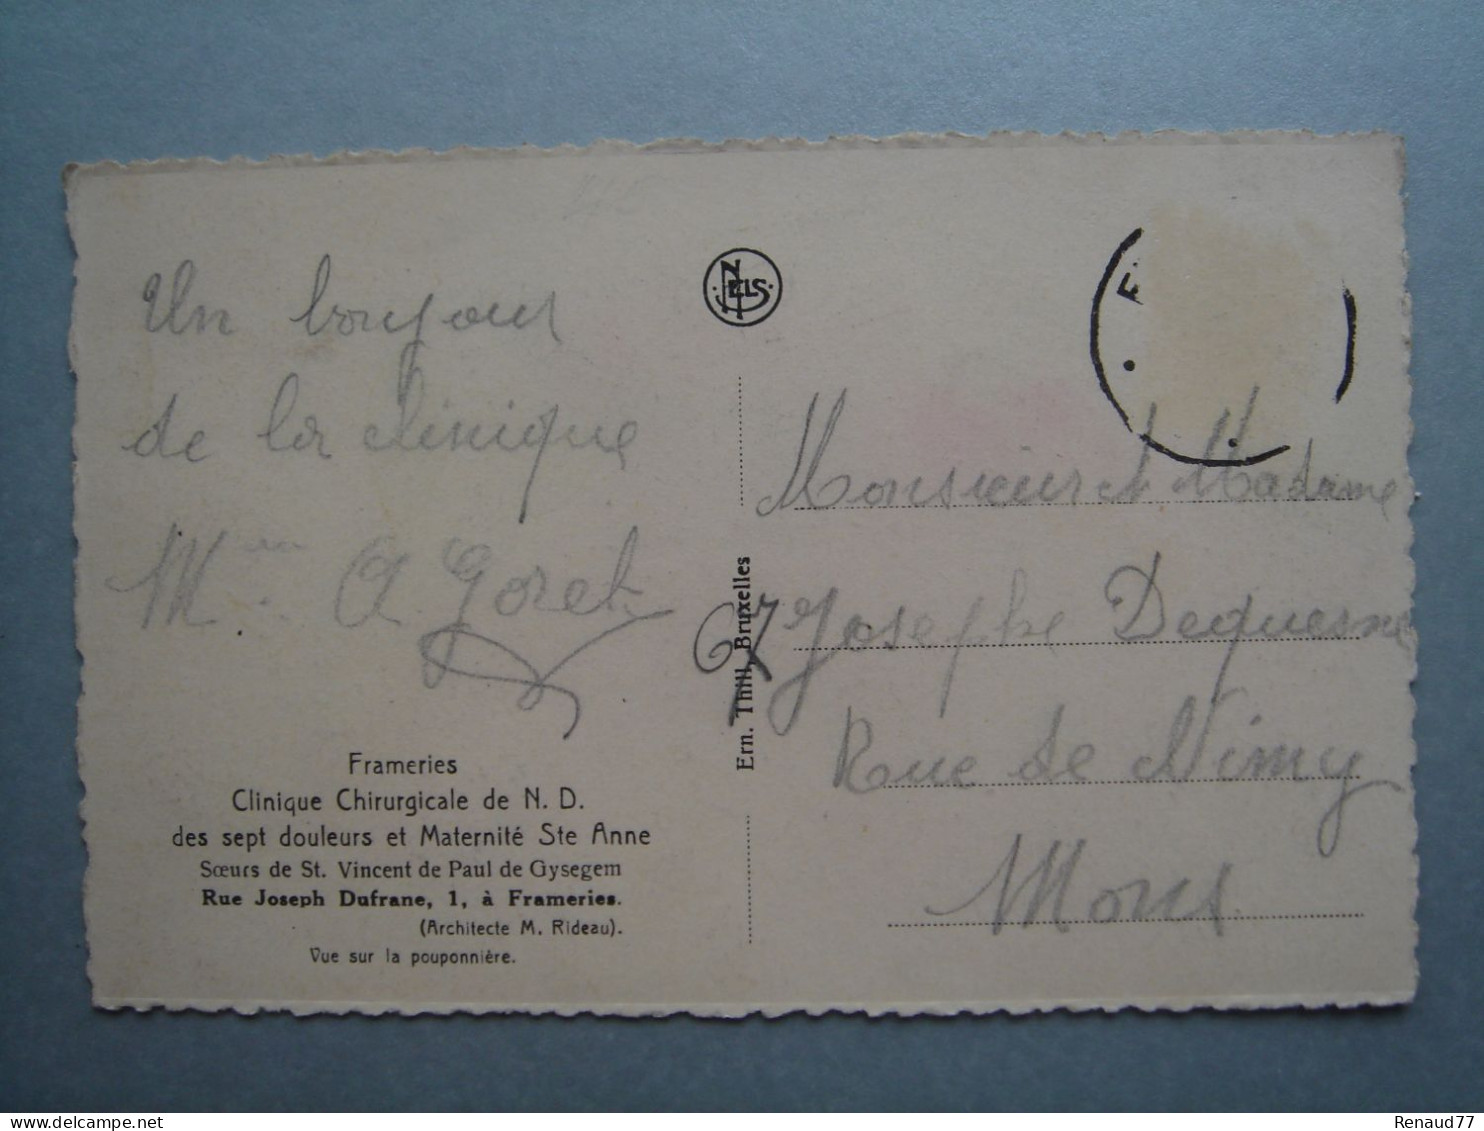 Un bonjour
de la clinique
Mme A Goret
Frameries
Clinique Chirurgicale de N. D.
des sept douleurs et Maternité Ste Anne
Sœurs de St. Vincent de Paul de Gysegem
Rue Joseph Dufrane, 1, à Frameries.
(Architecte M. Rideau).
Vue sur la pouponnière.
NELS
Ern. Thill, Bruxelles
F
Monsieur et Madame
67 Josephe Dequesne
Rue de Nimy
Mons
Renaud77